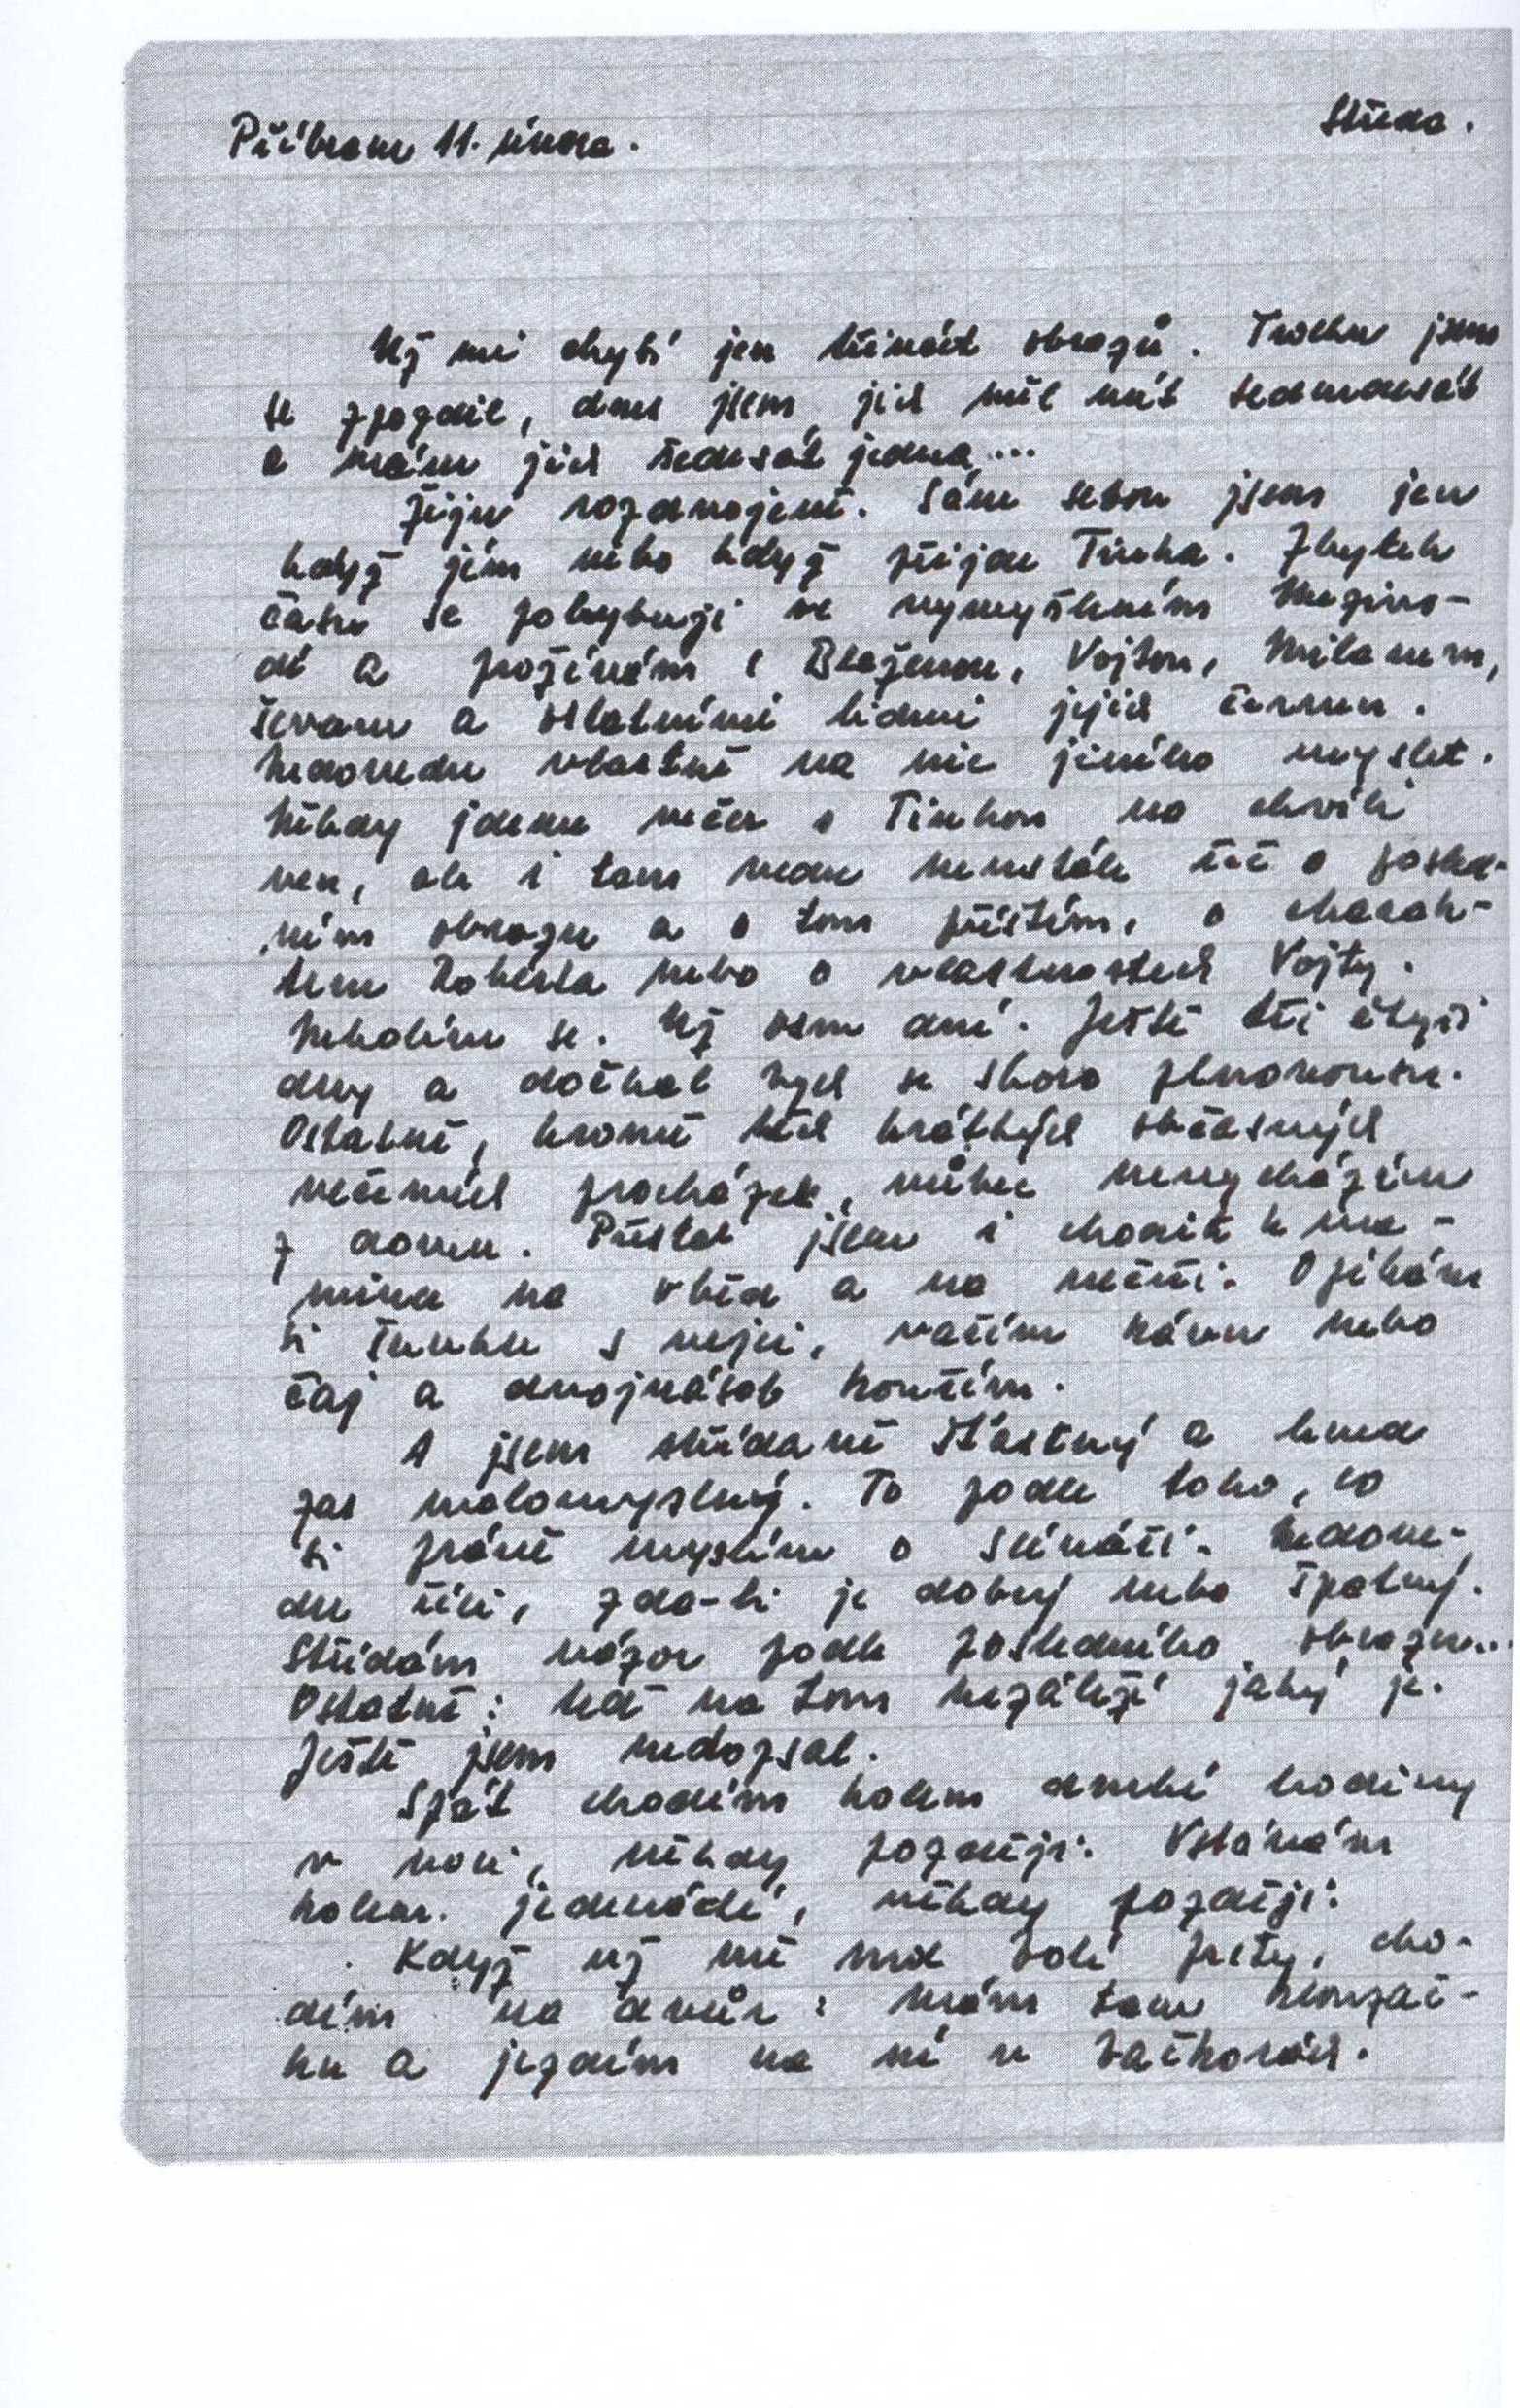 Příbram 11. února.
Středa.
Už mi chybí jen třináct obrazů. Trochu jsem
se zpozdil, dnes jsem jich měl mít sedmdesát
a mám jich šedesát jedna...
Žiju rozdvojeně. Sám sebou jsem jen
když jím nebo když přijde Tinka. Zbytek
času se pohybuji ve vymyšleném Meziro-
dí a prožívám s Blaženou, Vojtou, Milanem,
Ševarou a ostatními lidmi jejich
Nedovedu vlastně na nic jiného myslet.
Někdy jdeme večer s Tinkou na chvíli
ven, ale i tam vedu neustále řeč o posled-
ním obrazu a o tom příštím, o charak-
teru Roberta nebo o vlastnostech Vojty.
Neholím se. Už osm dní. Ještě tři čtyři
dny a dočkal bych se skoro plnovousu.
Ostatně, kromě těch krátkých občasných
večerních procházek, vůbec nevycházím
z domu. Přestal jsem i chodit k ma-
mince na oběd a na večeři. Opékám
si šunku s vejci, vařím kávu nebo
čaj a dvojnásob kouřím.
A jsem střídavě šťastný a hned
zas malomyslný. To podle toho, co
si právě myslím o scénáři. Nedove-
du říci, zda-li je dobrý nebo špatný.
Střídám názor podle posledního obrazu...
Ostatně: teď na tom nezáleží jaký je.
Ještě jsem nedopsal.
Spát chodím kolem druhé hodiny
v noci, někdy později. Vstávám
kolem jedenácté, někdy později.
Když už mě moc bolí prsty, cho-
dím na dvůr: mám tam klouzač-
ku a jezdím na ní v bačkorách.